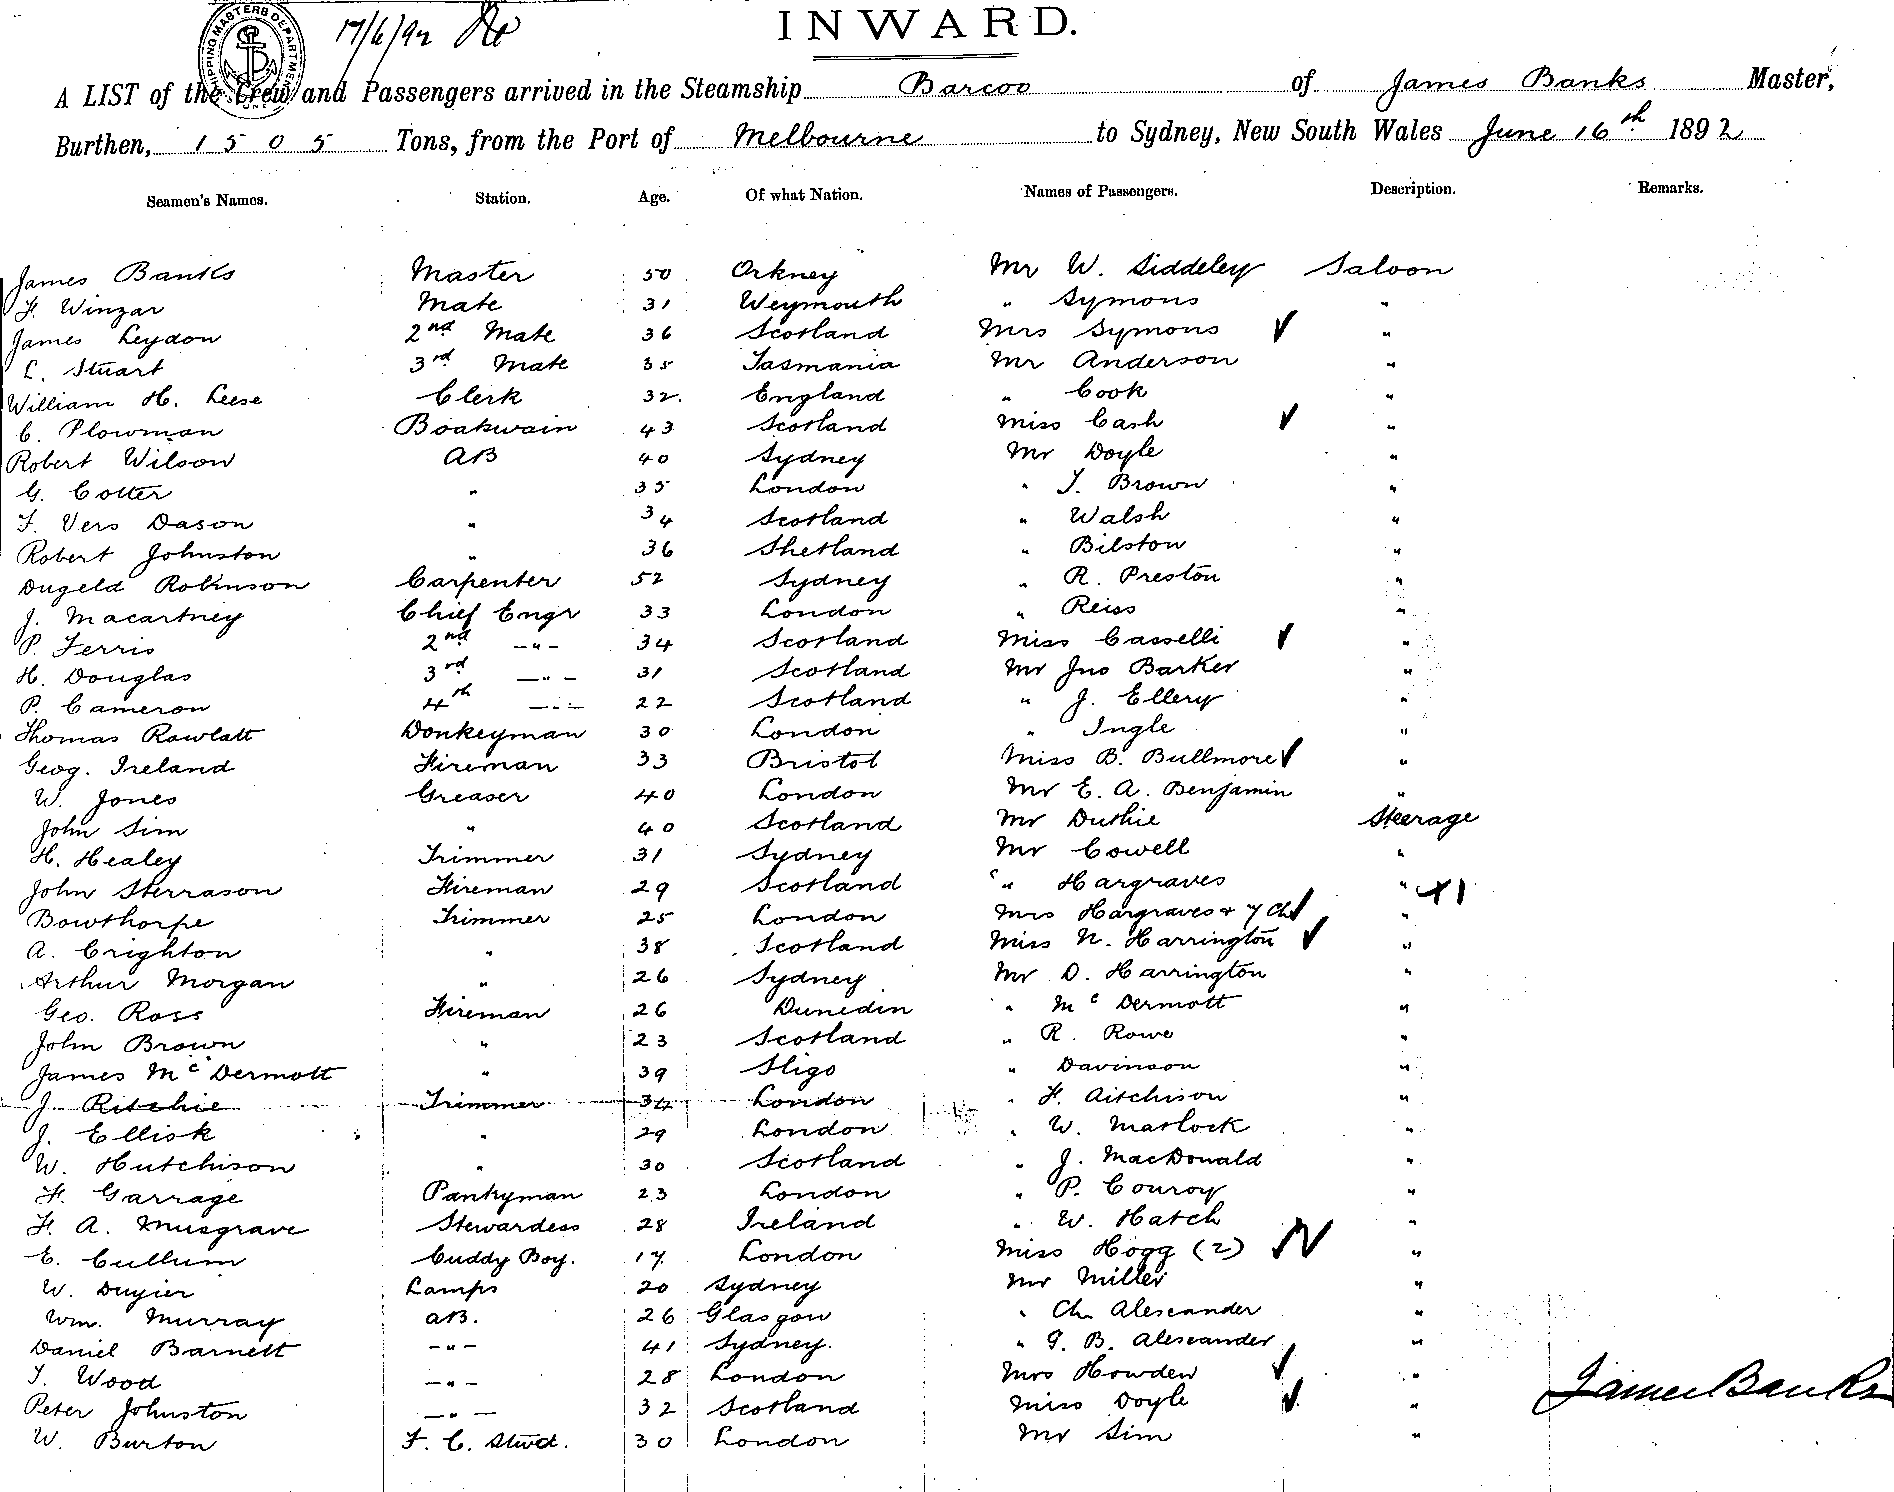 SHIPPING MASTERS DEPARTMENT
17/6/92
INWARD.
A LIST of the Crew and Passengers arrived in the Steamship Barcoo of James Banks Master,
Burthen, 1505 Tons, from the Port of Melbourne to Sydney, New South Wales June 16th 1892
Seamen's Names. Station. Age. Of what Nation. Names of Passengers. Description. Remarks.
James Banks Master 50 Orkney Mr W. Siddeley Saloon
F. Winzar Mate 31 Weymouth " Symons "
James Leydon 2nd Mate 36 Scotland Mrs Symons "
L. Stuart 3rd Mate 35 Tasmania Mr Anderson "
William H. Leese Clerk 32. England " Cook "
C. Plowman Boatswain 43 Scotland Miss Cash "
Robert Wilson AB 40 Sydney Mr Doyle "
G. Cotter " 35 London " T. Brown "
T. Vers Dason " 34 Scotland " Walsh "
Robert Johnston " 36 Shetland " Bilston "
Dugeld Robinson Carpenter 52 Sydney " R. Preston "
J. Macartney Chief Engr 33 London " Reiss "
P. Ferris 2nd -"- 34 Scotland Miss Casselli "
H. Douglas 3rd -"- 31 Scotland Mr Jno Barker "
P. Cameron 4th -"- 22 Scotland " J. Ellery "
Thomas Rowlatt Donkeyman 30 London " Ingle "
Geog. Ireland Fireman 33 Bristol Miss B. Bullmore "
W. Jones Greaser 40 London Mr E. A. Benjamin "
John Sim " 40 Scotland Mr Duthie Steerage
H. Healey Trimmer 31 Sydney Mr Cowell "
John Sterrason Fireman 29 Scotland " Hargraves "
Bowthorpe Trimmer 25 London Mrs Hargraves + 7 Ch "
A. Crighton " 38 Scotland Miss N. Harrington "
Arthur Morgan " 26 Sydney Mr D. Harrington "
Geo. Ross Fireman 26 Dunedin " McDermott "
John Brown " 23 Scotland " R. Rowe "
James McDermott " 39 Sligo " Davinson "
J. Ritchie Trimmer 34 London " F. Aitchison "
J. Ellisk " 29 London " W. Matlock "
W. Hutchison " 30 Scotland " J. MacDonald "
F. Garrage Pantryman 23 London " P. Couroy "
F. A. Musgrave Stewardess 28 Ireland " W. Hatch "
E. Cullum Cuddy Boy. 17 London Miss Hogg (2) "
W. Duyier Lamps 20 Sydney Mr Miller "
Wm. Murray AB. 26 Glasgow " Ch. Alexander "
Daniel Barnett -"- 41 Sydney. " G. B. Alexander "
T. Wood -"- 28 London Mrs Howden "
Peter Johnston -"- 32 Scotland Miss Doyle "
W. Burton F. C. Stwd. 30 London Mr Sim "
James Banks